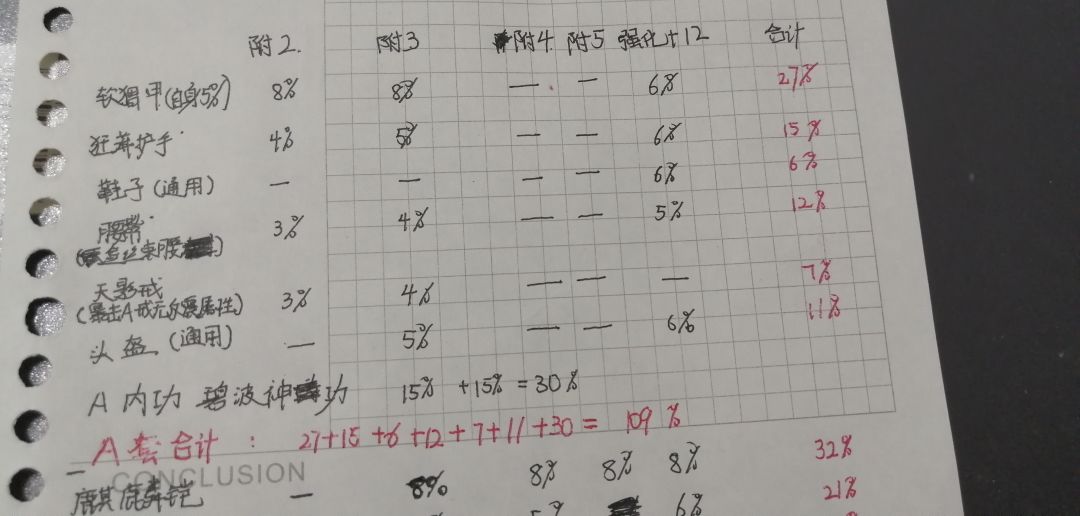 附2. 附3 附4 附5 强化+12 合计
软猬甲(自身5%) 8% 8% — — 6% 27%
狂莽护手 4% 5% — — 6% 15%
鞋子(通用) — — — — 6% 6%
腰带 3% 4% — — 5% 12%
束腰
天影戒 3% 4% — — — 7%
(暴击A成无尔震属性)
头盔(通用) — 5% — — 6% 11%
A 内功 碧波神功 15% +15% = 30%
A套合计: 27+15+6+12+7+11+30= 109%
CONCLUSION
麒麟铠 — 8% 8% 8% 8% 32%
5% 6% 21%